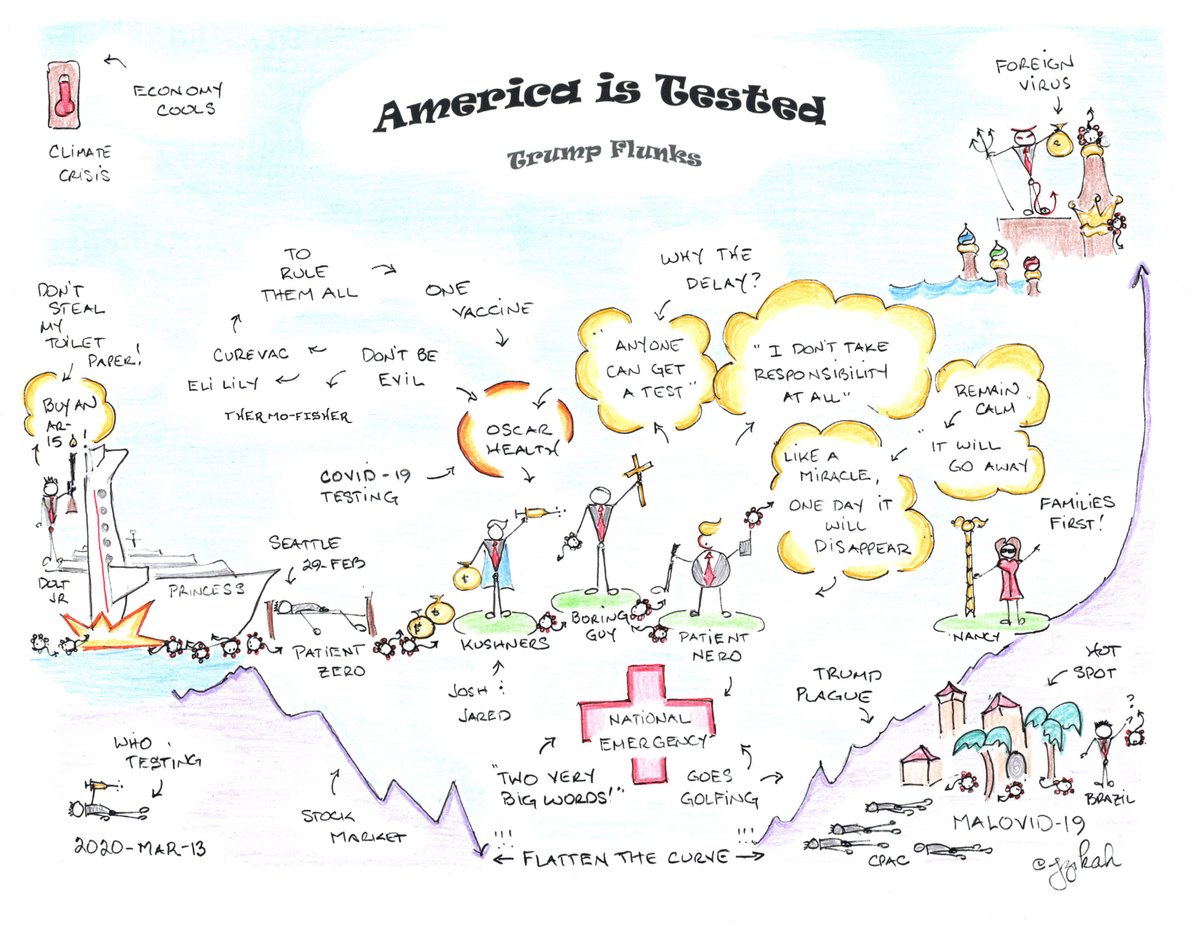 America is Tested
Trump Flunks
ECONOMY
COOLS
CLIMATE
CRISIS
FOREIGN
VIRUS
DON'T
STEAL
MY
TOILET
PAPER!
BUY AN
AR-
15!
DOLT
JR
PRINCESS
TO
RULE
THEM ALL
ONE
VACCINE
CUREVAC
ELI LILY
DON'T BE
EVIL
THERMO-FISHER
OSCAR
HEALTH
COVID-19
TESTING
WHY THE
DELAY?
"ANYONE
CAN GET
A TEST"
"I DON'T TAKE
RESPONSIBILITY
AT ALL"
REMAIN
CALM
"IT WILL
GO AWAY
LIKE A
MIRACLE,
ONE DAY IT
WILL
DISAPPEAR
FAMILIES
FIRST!
NANCY
SEATTLE
29-FEB
PATIENT
ZERO
KUSHNERS
JOSH :
JARED
BORING
GUY
PATIENT
NERO
NATIONAL
EMERGENCY
"TWO VERY
BIG WORDS!"
GOES
GOLFING
TRUMP
PLAGUE
HOT
SPOT
?
?
BRAZIL
MALOVID-19
CPAC
WHO :
TESTING
2020-MAR-13
STOCK
MARKET
!!!
!!!
FLATTEN THE CURVE